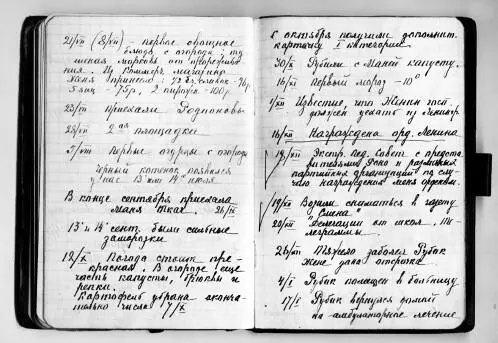 21/VII (8/VII) - первое овощное
блюдо с огорода: ту
шеная морковь от прореживания
ния. Из Коммерч. магазина
Женя принесла:
5 яиц - 75р, 2 - 100р
23/VII приехали Родионовы
28/VII 2ая площадка
5/VIII Первые огурцы с огорода
Чёрный котёнок появился
у нас 13 или 14го июля
В конце сентября приехала
Маня 26/IX
13 и 14 сент. были сильные
заморозки
12/X Погода стоит пре-
красная. В огороде еще
часть капусты, брюквы и
репки.
Картофель убрана оконча-
тельно числа 7/X
С октября получили дополнит.
карточку I категории
30/X Рубили с Маней капусту.
16/XI Первый мороз - 10°
Известие, что Женин госп.
должен уехать из Ленингр.
16/XII Награждена орд. Ленина
19/XII Экстр. Пед. Совет с предста
вителями Роно и
партийных организаций по слу-
чаю награждения меня орденом.
19/XII Возили сниматься в газету
"Смена"
20/XII Делегации от школ. Те-
леграммы.
26/XII Тяжело заболел Рубик
Жене дана отсрочка
4/I Рубик помещен в больницу
17/I Рубик вернулся домой
на амбулаторное лечение